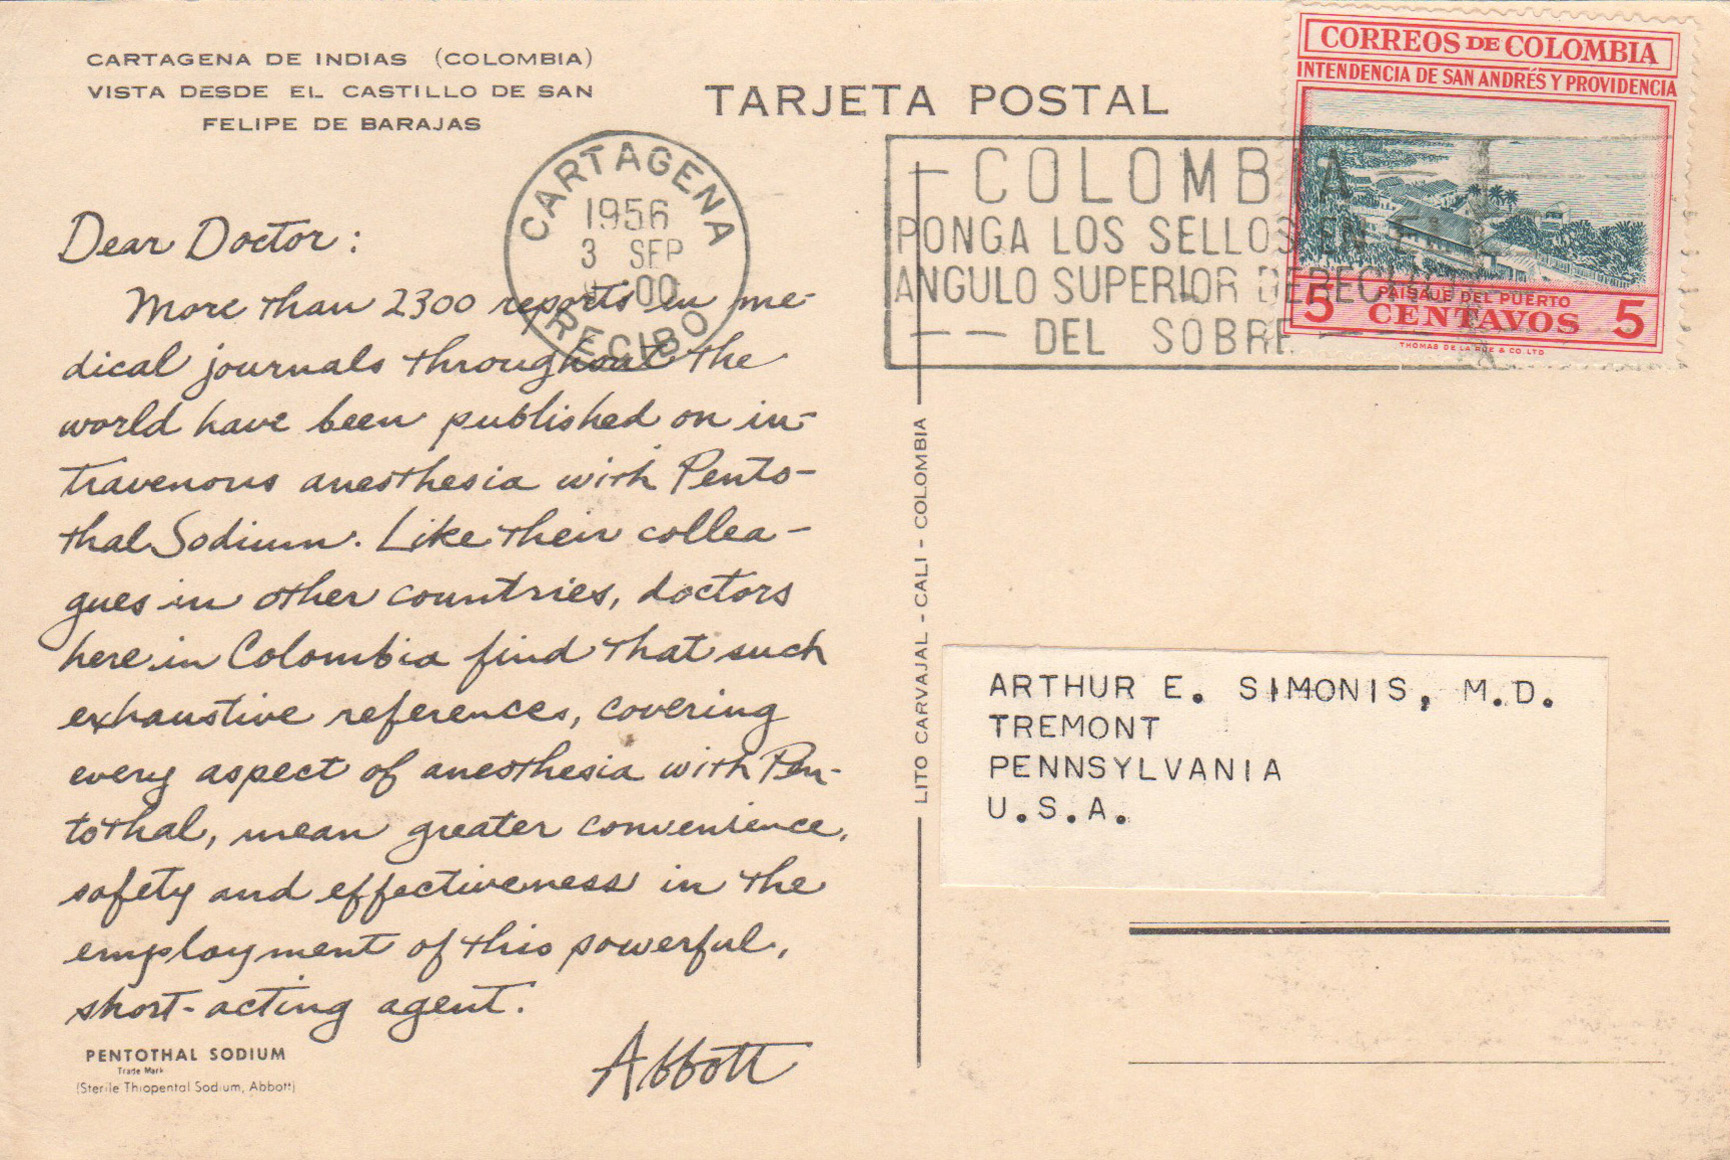 CARTAGENA DE INDIAS (COLOMBIA)
VISTA DESDE EL CASTILLO DE SAN
FELIPE DE BARAJAS
TARJETA POSTAL
CORREOS DE COLOMBIA
INTENDENCIA DE SAN ANDRÉS Y PROVIDENCIA
PAISAJE DEL PUERTO
5 CENTAVOS 5
THOMAS DE LA RUE & CO. LTD
CARTAGENA
1956
3 SEP
00
RECIBO
COLOMBIA
PONGA LOS SELLOS EN EL
ANGULO SUPERIOR DERECHO
DEL SOBRE
Dear Doctor:
More than 2300 reports in me-
dical journals throughout the
world have been published on in-
travenous anesthesia with Pento-
thal Sodium. Like their collea-
gues in other countries, doctors
here in Colombia find that such
exhaustive references, covering
every aspect of anesthesia with Pen-
tothal, mean greater convenience,
safety and effectiveness in the
employment of this powerful,
short-acting agent.
Abbott
PENTOTHAL SODIUM
Trade Mark
(Sterile Thiopental Sodium, Abbott)
LITO CARVAJAL - CALI - COLOMBIA
ARTHUR E. SIMONIS, M.D.
TREMONT
PENNSYLVANIA
U.S.A.